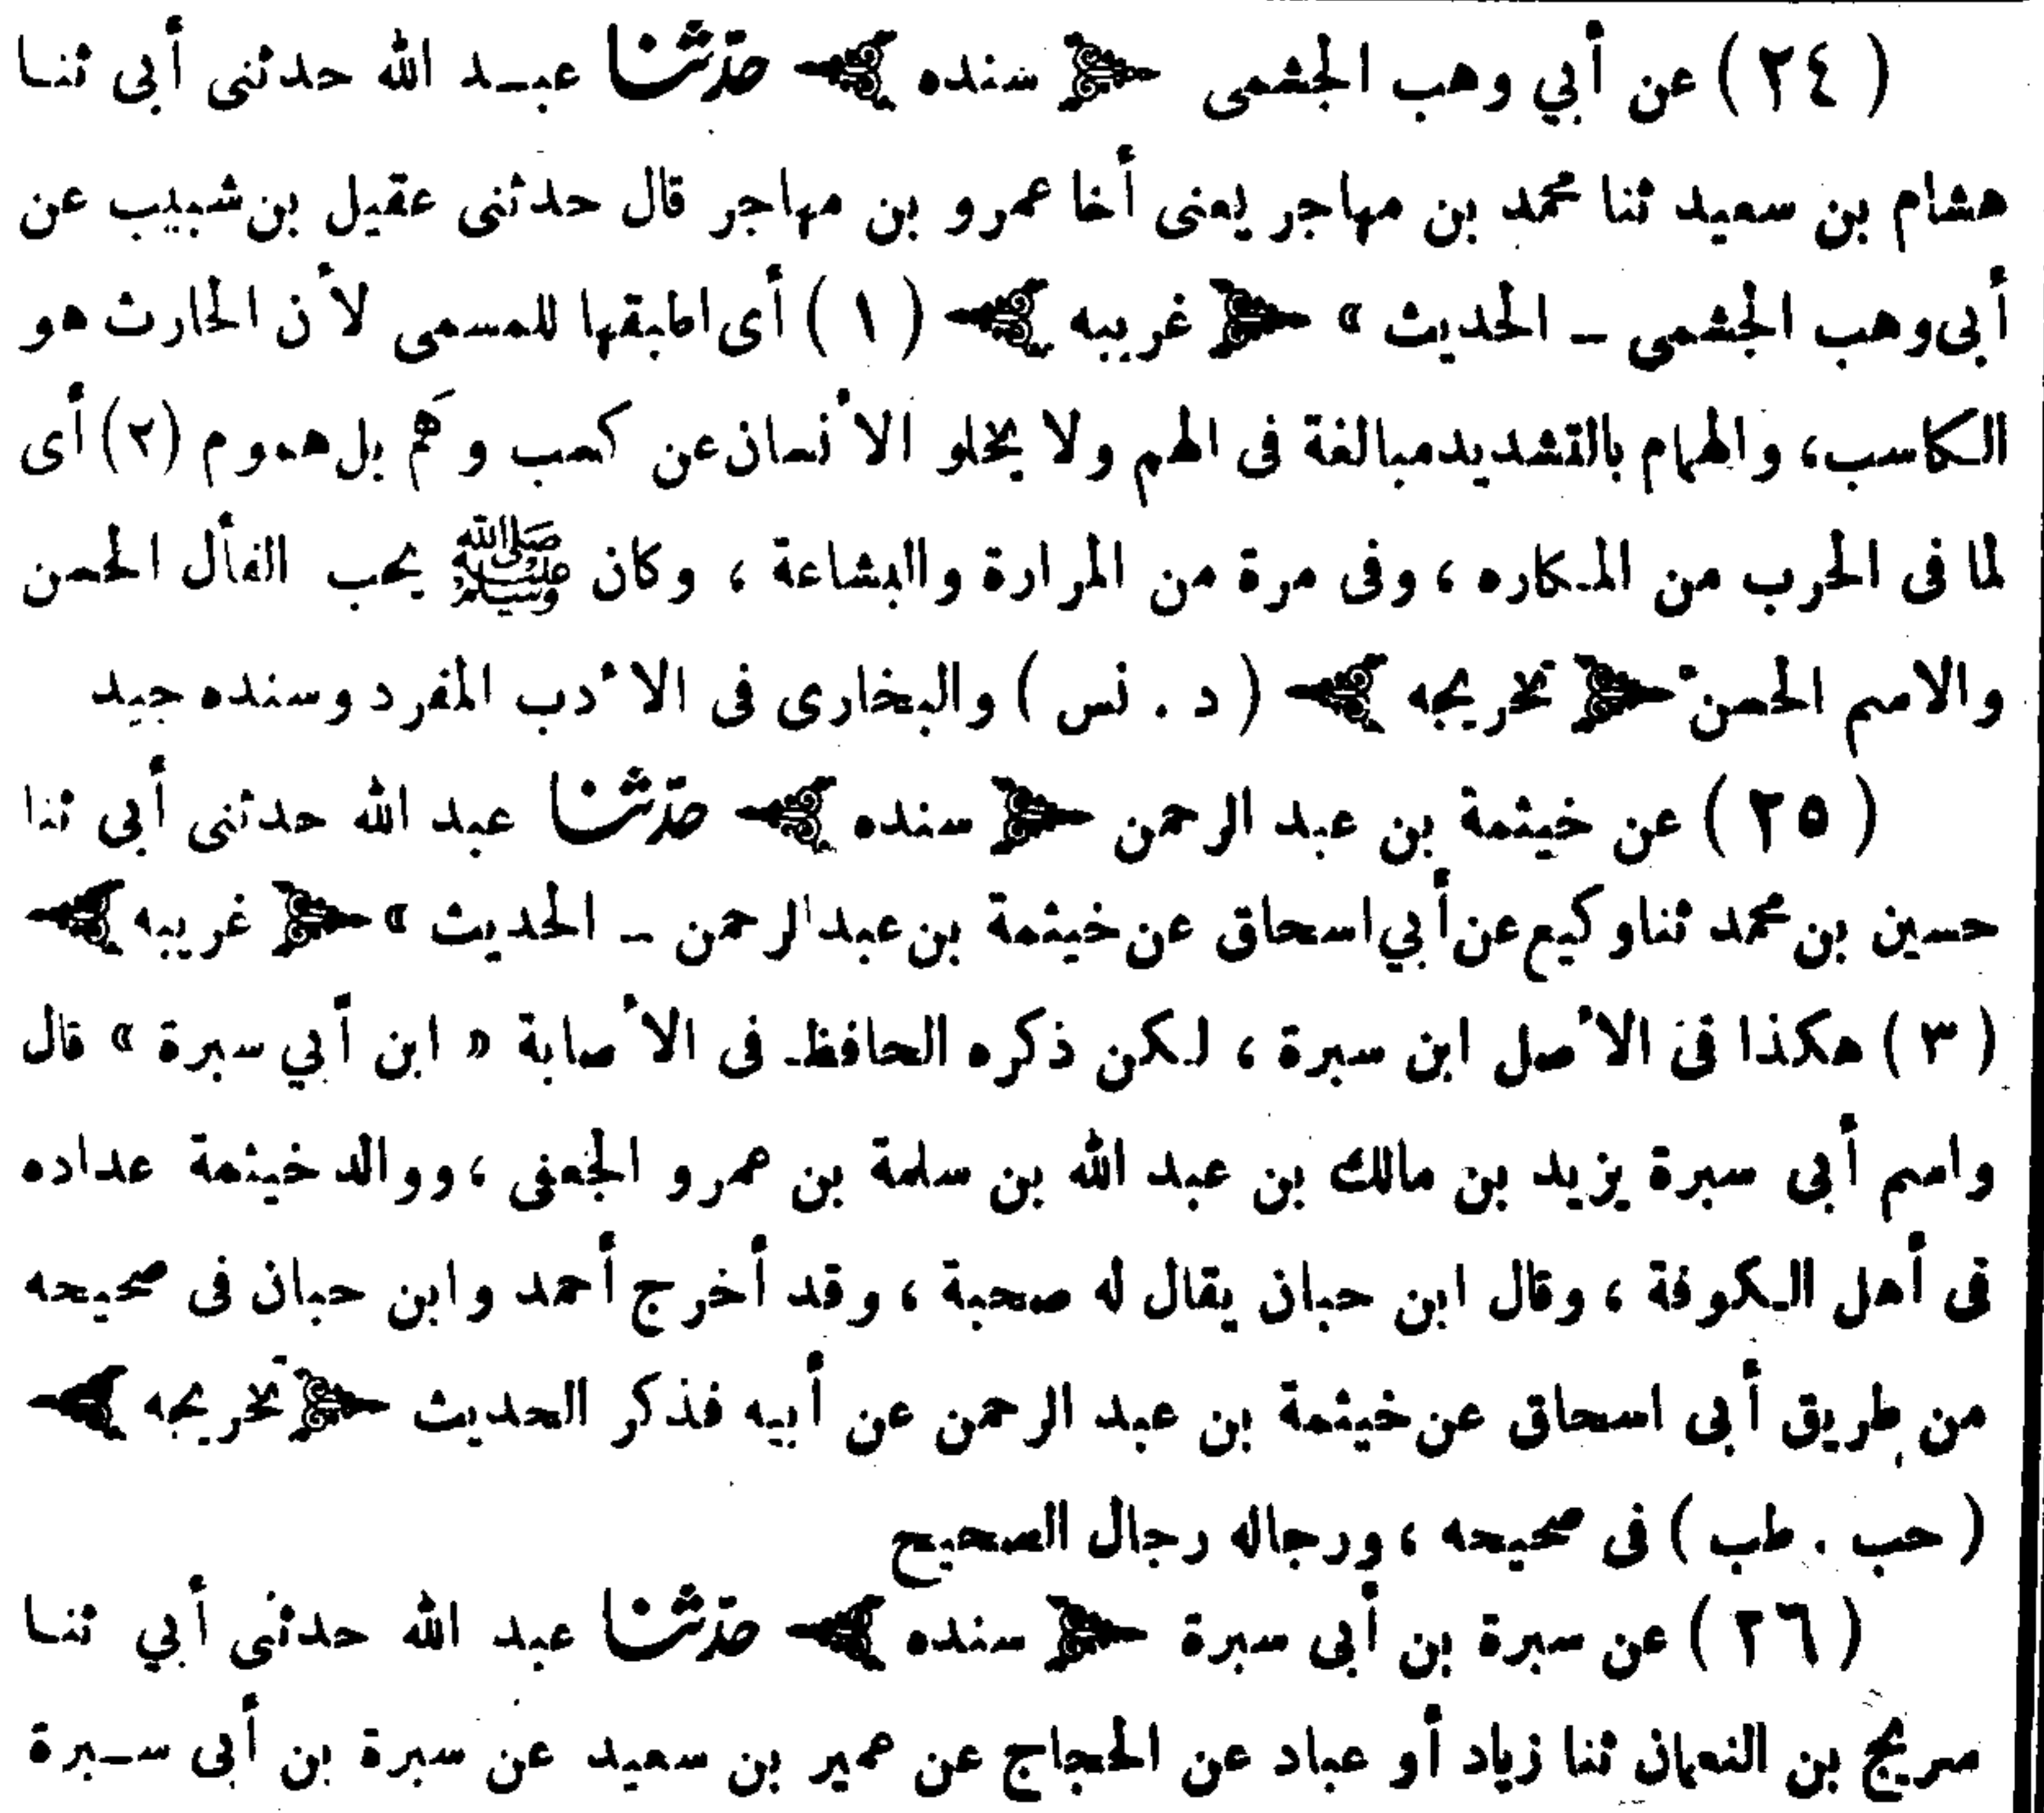 (٢٤) عن أبي وهب الجشمى ﴿ سنده ﴾ حدّثنا عبـد الله حدثنى أبى ثنـا
هشام بن سعيد ثنا محمد بن مهاجر يعنى أخا عمرو بن مهاجر قال حدثنى عقيل بن شبيب عن
أبى وهب الجشمى ــ الحديث » ﴿ غريبه ﴾ (١) أى اطبقها للمسمى لأن الحارث هو
الـكاسب، والهمام بالتشديد مبالغة فى الهم ولا يخلو الأنسان عن كسب وهَم بل هموم (٢) أى
لما فى الحرب من المـكاره ، وفى مرة من المرارة والبشاعة ، وكان ﷺ يحب الفأل الحسن
والاسم الحسن ﴿ تخريجه ﴾ (د . نس) والبخارى فى الأدب المفرد وسنده جيد
(٢٥) عن خيثمة بن عبد الرحمن ﴿ سنده ﴾ حدّثنا عبد الله حدثنى أبى ثنا
حسين بن محمد ثنا وكيع عن أبي اسحاق عن خيثمة بن عبد الرحمن ــ الحديث » ﴿ غريبه ﴾
(٣) هكذا فى الأصل ابن سبرة ، لـكن ذكره الحافظ فى الأصابة « ابن أبي سبرة » قال
واسم أبى سبرة يزيد بن مالك بن عبد الله بن سلمة بن عمرو الجعفى ، ووالد خيثمة عداده
فى أهل الـكوفة ، وقال ابن حبان يقال له صحبة ، وقد أخرج أحمد وابن حبان فى صحيحه
من طريق أبى اسحاق عن خيثمة بن عبد الرحمن عن أبيه فذكر الحديث ﴿ تخريجه ﴾
(حب . طب) فى صحيحه ، ورجاله رجال الصحيح
(٢٦) عن سبرة بن أبى سبرة ﴿ سنده ﴾ حدّثنا عبد الله حدثنى أبي ثنـا
سريج بن النعمان ثنا زياد أو عباد عن الحجاج عن عمير بن سعيد عن سبرة بن أبى سـبرة